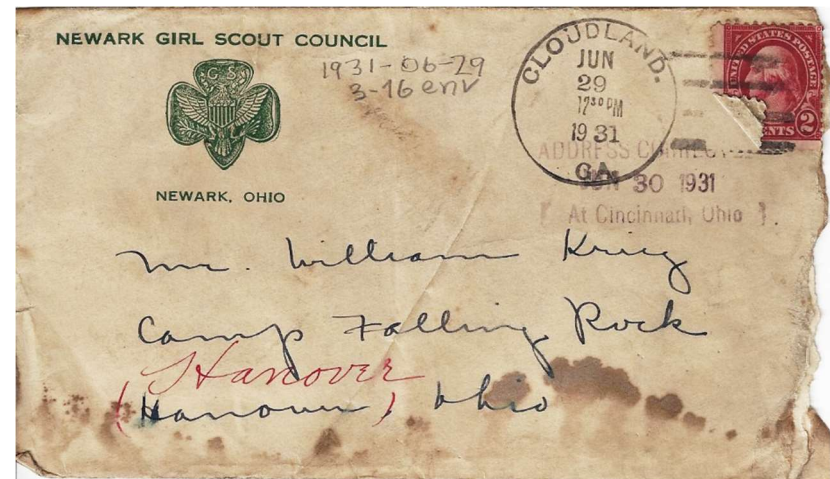 NEWARK GIRL SCOUT COUNCIL
GS
NEWARK, OHIO
1931-06-29
3-16 env
CLOUDLAND.
JUN
29
12 30 PM
1931
GA.
UNITED STATES POSTAGE
2
CENTS
ADDRESS
JUN 30 1931
[ At Cincinnati, Ohio ].
Mr. William Krieg
Camp Falling Rock
Hanover
(Hanover) Ohio